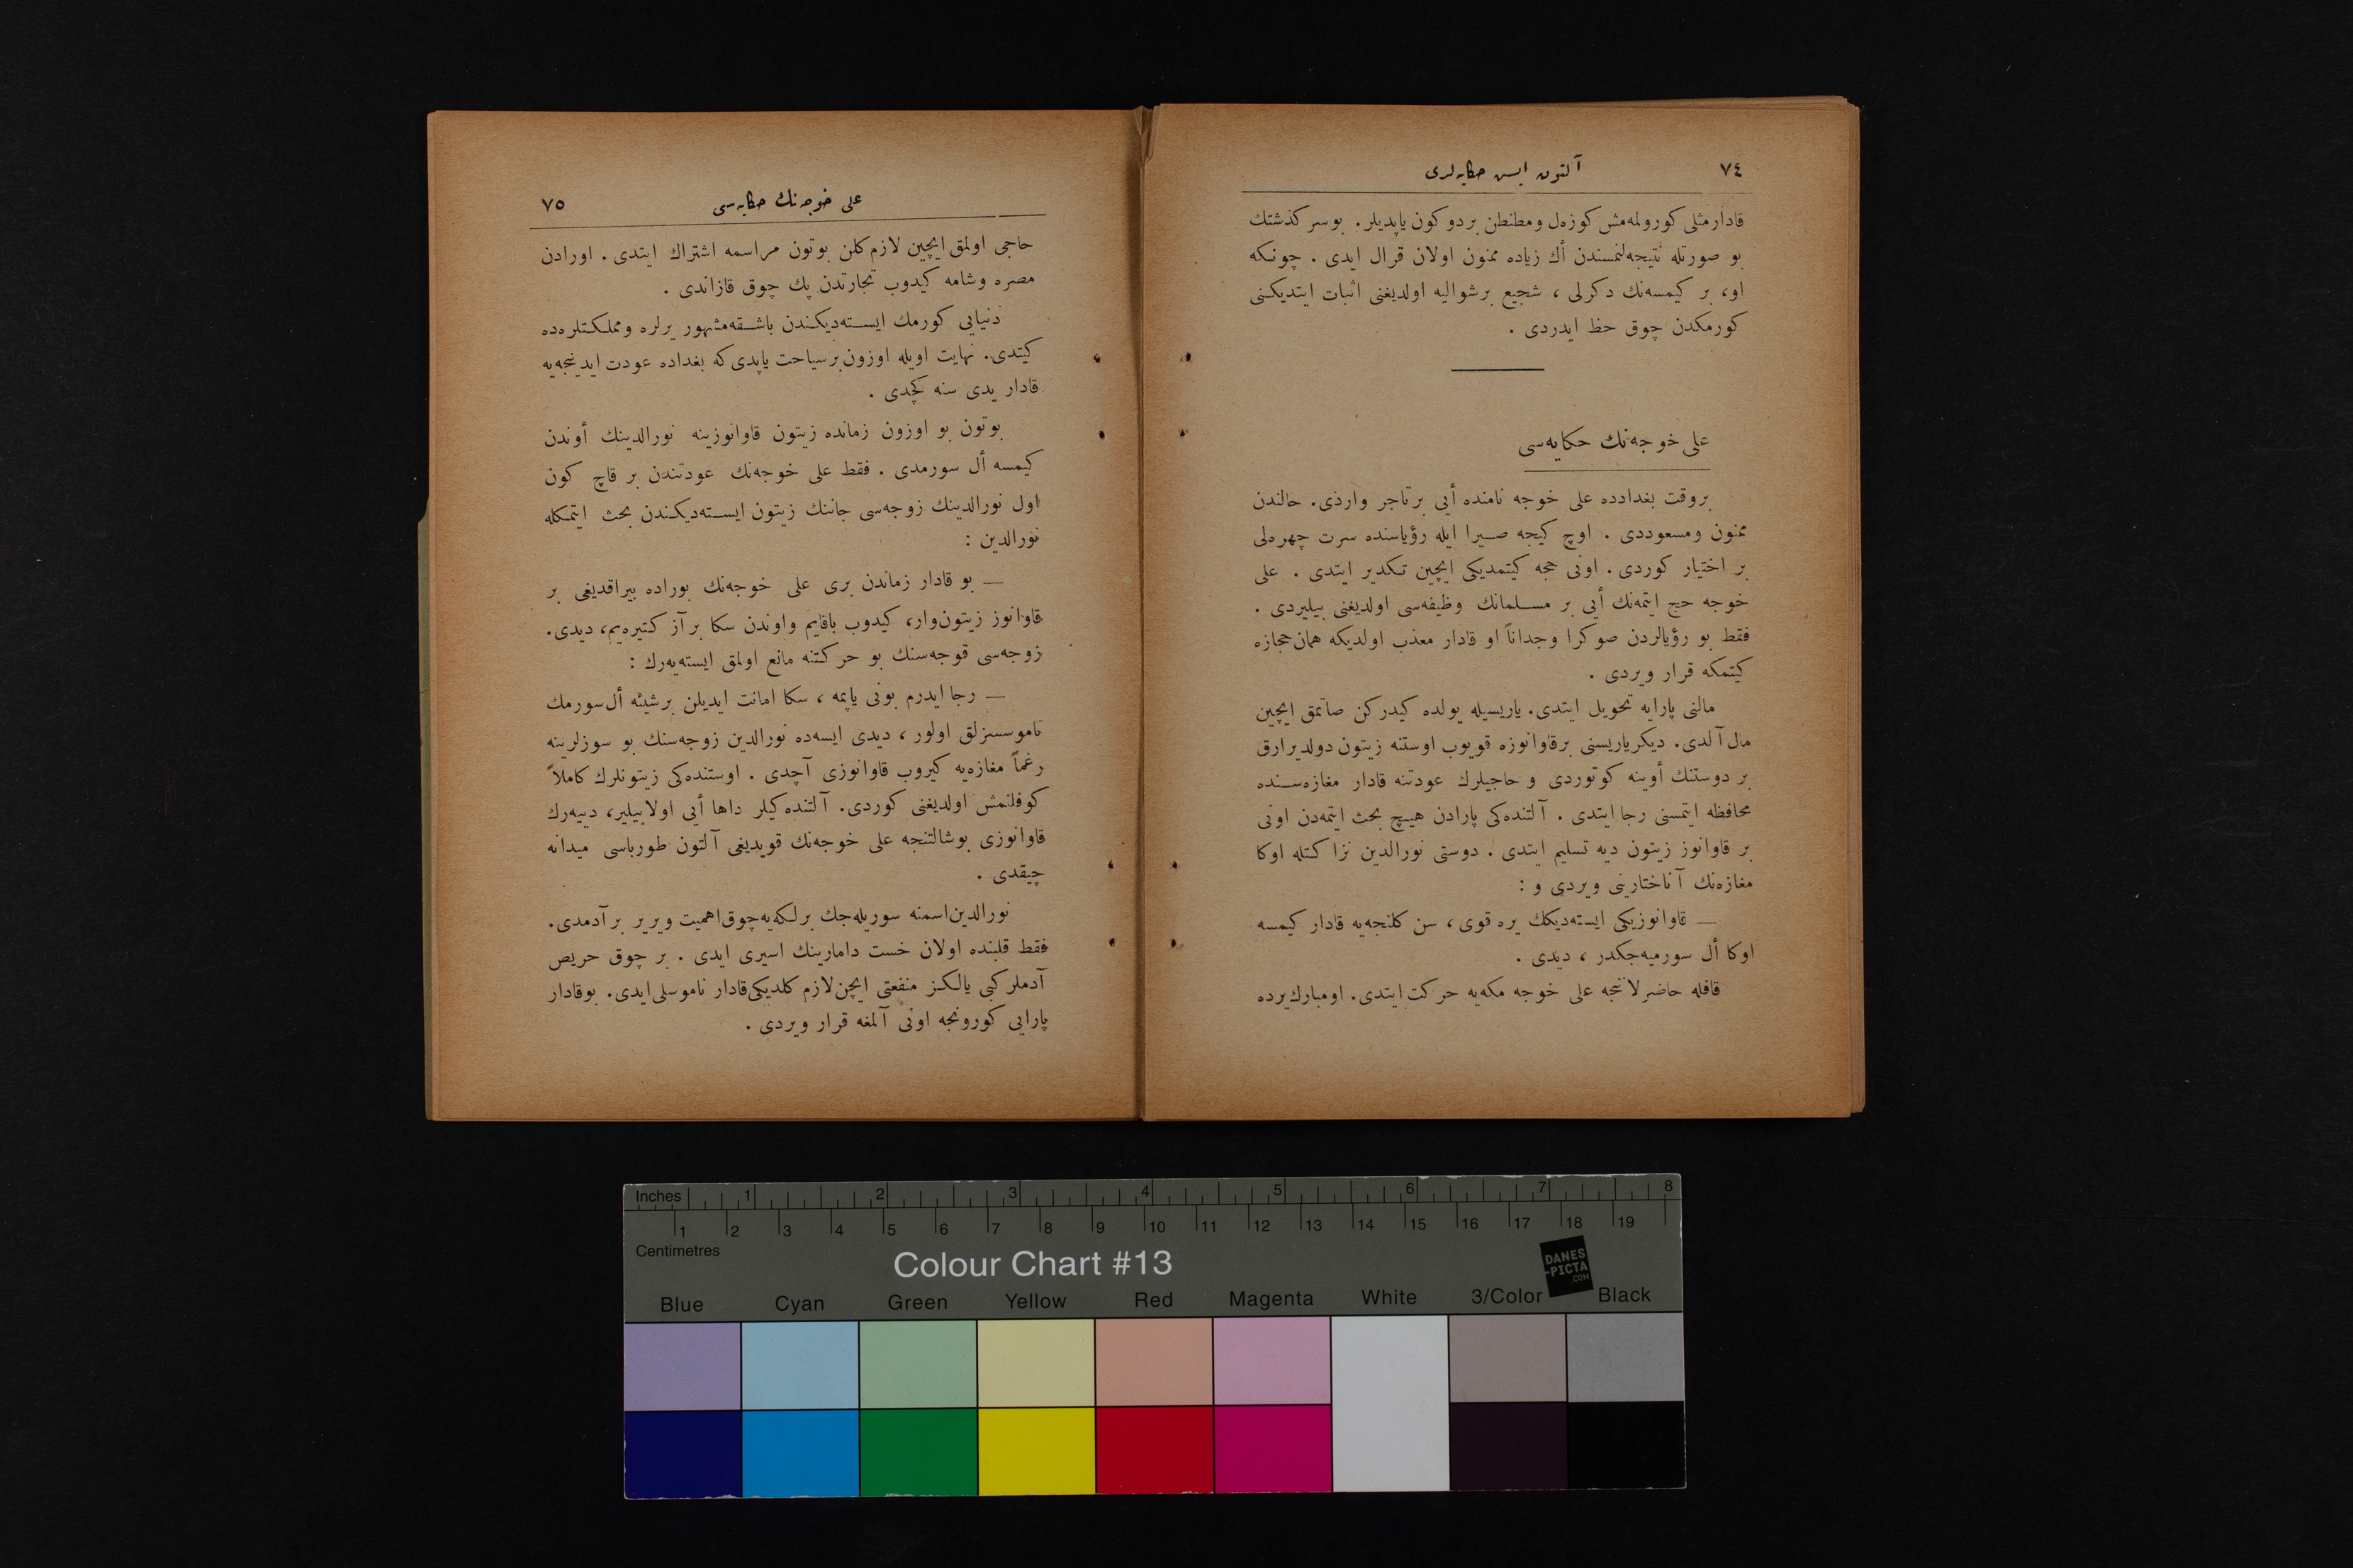 ٧٤
آلتون ایسن حکایه‌لری
قادار مثلی كورولمه‌مش كوزه‌ل ومطنطن بر دوكون یاپدیلر. بوسر كذشتك
بو صورتله نتیجه‌لنمسندن أك زیاده ممنون اولان قرال ایدی . چونكه
او، بر كیمسه‌نك دكرلی ، شجیع بر شوالیه اولدیغنی اثبات ایتدیكنی
كورمكدن چوق حظ ایدردی .
علی خوجه‌نك حكایه‌سی
بر وقت بغدادده علی خوجه نامنده أیی بر تاجر واردی. حالندن
ممنون ومسعوددی . اوچ كیجه صـیرا ایله رؤیاسنده سرت چهره‌لی
بر اختیار كوردی . اونی حجه كیتمدیكی ایچین تـكدیر ایتدی . علی
خوجه حج ایتمه‌نك أیی بر مسـلمانك وظیفه‌سی اولدیغنی بیلیردی .
فقط بو رؤیالردن صوكرا وجداناً او قادار معذب اولدیكه همان حجازه
كیتمكه قرار ویردی .
مالنی پارایه تحویل ایتدی. یاریسیله یولده كیدركن صاتمق ایچین
مال آلدی. دیكر یاریسنی بر قاوانوزه قویوب اوستنه زیتون دولدیرارق
بر دوستنك أوینه كوتوردی و حاجیلرك عودتنه قادار مغازه‌سـنده
محافظه ایتمسنی رجا ایتدی . آلتنده‌كی پارادن هیـچ بحث ایتمه‌دن اونی
بر قاوانوز زیتون دیه تسلیم ایتدی . دوستی نورالدین نزاكتله اوكا
مغازه‌نك آناختارینی ویردی و :
— قاوانوزیكی ایسته‌دیكك یره قوی ، سن كلنجه‌یه قادار كیمسه
اوكا أل سورمیه‌جكدر ، دیدی .
قافله حاضرلانجه علی خوجه مكه‌یه حركت ایتدی. او مبارك یرده
علی خوجه‌نك حكایه‌سی
٧٥
حاجی اولمق ایچین لازم كلن بوتون مراسمه اشتراك ایتدی . اورادن
مصره وشامه كیدوب تجارتدن پك چوق قازاندی .
دنیایی كورمك ایسـته‌دیكندن باشـقه مشهور یرلره ومملكتلره‌ده
كیتدی. نهایت اویله اوزون بر سیاحت یاپدی كه بغداده عودت ایدینجه‌یه
قادار یدی سنه كچدی .
بوتون بو اوزون زمانده زیتون قاوانوزینه نورالدینك أوندن
كیمسه أل سورمدی . فقط علی خوجه‌نك عودتندن بر قاچ كون
اول نورالدینك زوجه‌سی جاننك زیتون ایسـته‌دیكندن بحث ایتمكله
نورالدین :
— بو قادار زماندن بری علی خوجه‌نك بوراده بیراقدیغی بر
قاوانوز زیتون‌وار، كیدوب باقایم واوندن سكا بر آز كتیره‌یم، دیدی.
زوجه‌سی قوجه‌سنك بو حركتنه مانع اولمق ایسته‌یه‌رك :
— رجا ایدرم بونی یاپمه ، سكا امانت ایدیلن بر شیئه أل سورمك
ناموسسزلق اولور ، دیدی ایسه‌ده نورالدین زوجه‌سنك بو سوزلرینه
رغماً مغازه‌یه كیروب قاوانوزی آچدی . اوستنده‌كی زیتونلرك كاملاً
كوفلنمش اولدیغنی كوردی. آلتنده‌كیلر داها أیی اولابیلیر، دییه‌رك
قاوانوزی بوشالتنجه علی خوجه‌نك قویدیغی آلتون طورباسی میدانه
چیقدی .
نورالدین اسمنه سوریله‌جك بر لكه‌یه چوق اهمیت ویریر بر آدمدی.
فقط قلبنده اولان خست دامارینك اسیری ایدی . بر چوق حریص
آدملر كبی یالكـز منفعتی ایچن لازم كلدیكی قادار ناموسلی ایدی. بوقادار
پارایی كورونجه اونی آلمغه قرار ویردی .
Inches 1 2 3 4 5 6 7 8
1 2 3 4 5 6 7 8 9 10 11 12 13 14 15 16 17 18 19
Centimetres
Colour Chart #13
DANES
-PICTA
.COM
Blue Cyan Green Yellow Red Magenta White 3/Color Black